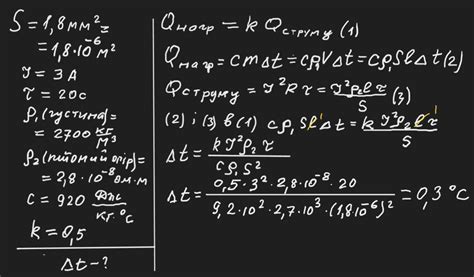 S = 1,8 мм² =
= 1,8·10⁻⁶ м²
I = 3 А
τ = 20 с
ρ₁ (густина) =
= 2700 кг/м³
ρ₂ (питомий опір) =
= 2,8·10⁻⁸ Ом·м
c = 920 Дж/кг·°C
k = 0,5
Δt – ?
Qнагр = k Qструму (1)
Qнагр = cmΔt = cρ₁VΔt = cρ₁SlΔt (2)
Qструму = I²Rτ = I²ρ₂lτ/S (3)
(2) і (3) в (1) cρ₁SlΔt = kI²ρ₂lτ/S
Δt = kI²ρ₂τ/cρ₁S²
Δt = 0,5·3²·2,8·10⁻⁸·20/9,2·10²·2,7·10³·(1,8·10⁻⁶)² = 0,3 °C